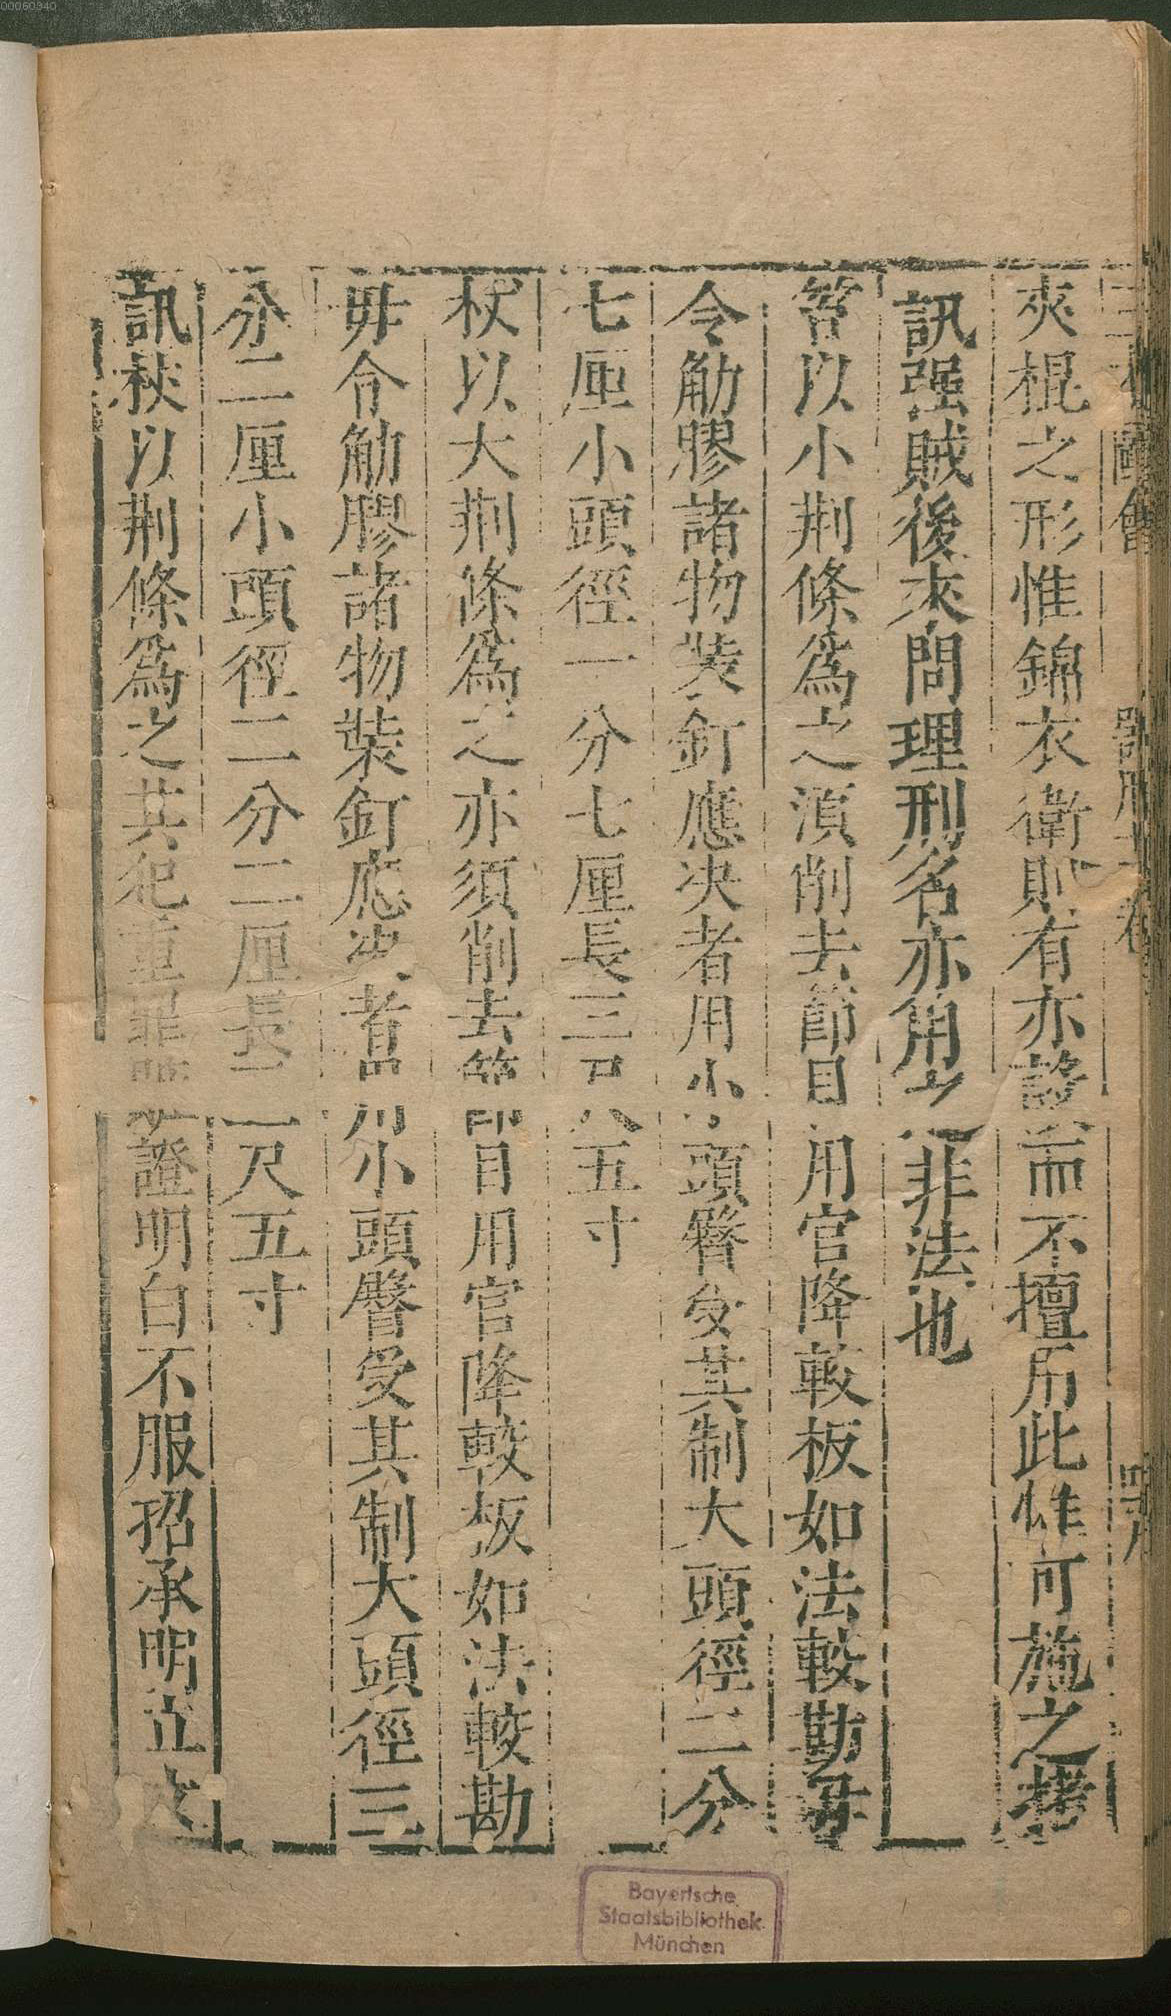 00060340
三才圖會 器用十二卷 罪八
夾棍之形惟錦衣衛則有亦設而不擅用此惟可施之拷
訊强賊後來問理刑名亦用之非法也
笞以小荆條爲之湏削去節目用官降較板如法較勘毋
令觔膠諸物裝釘應决者用小頭臀受其制大頭徑二分
七厘小頭徑一分七厘長三尺五寸
杖以大荆條爲之亦須削去節目用官降較板如法較勘
毋令觔膠諸物裝釘應决者用小頭臀受其制大頭徑三
分二厘小頭徑二分二厘長三尺五寸
訊杖以荆條爲之其犯重罪證明白不服招承明立文
Bayerische
Staatsbibliothek
München